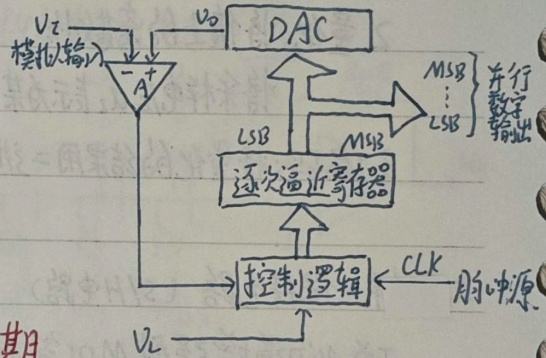 V_I
V_0
DAC
模拟输入
- +
A
MSB
⋮
LSB
并行
数字
输出
LSB
MSB
逐次逼近寄存器
控制逻辑
CLK
脉冲源
V_L
期